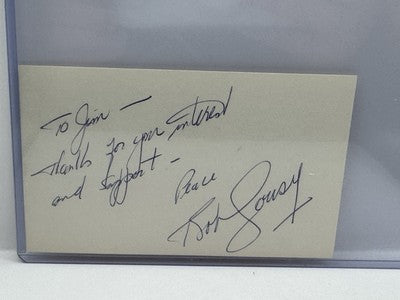 To Jim —
Thanks for your interest
and support —
Peace
Bob Cousy